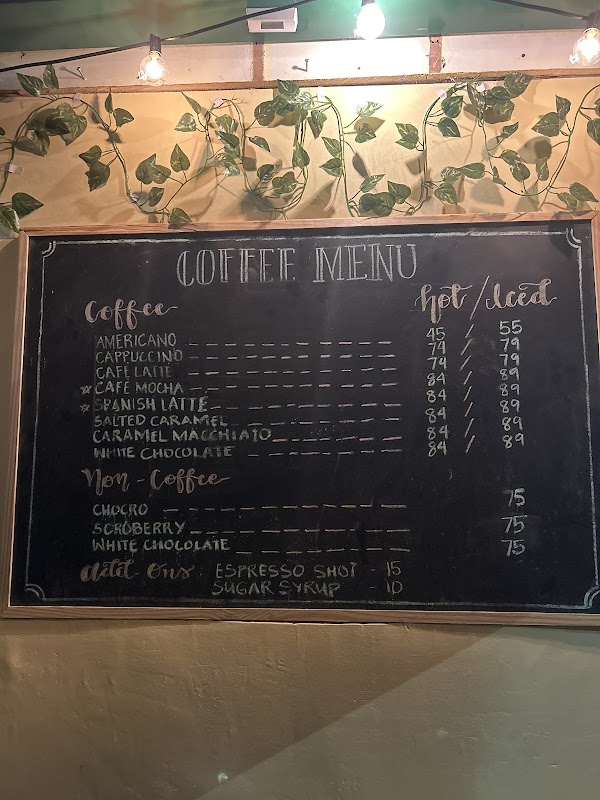 COFFEE MENU
Coffee Hot / Iced
AMERICANO 45 / 55
CAPPUCCINO 74 / 79
CAFE LATTE 74 / 79
☆ CAFÉ MOCHA 84 / 89
☆ SPANISH LATTE 84 / 89
SALTED CARAMEL 84 / 89
CARAMEL MACCHIATO 84 / 89
WHITE CHOCOLATE 84 / 89
Non-Coffee
CHOCRO 75
SCROBERRY 75
WHITE CHOCOLATE 75
Add-Ons: ESPRESSO SHOT - 15
SUGAR SYRUP - 10